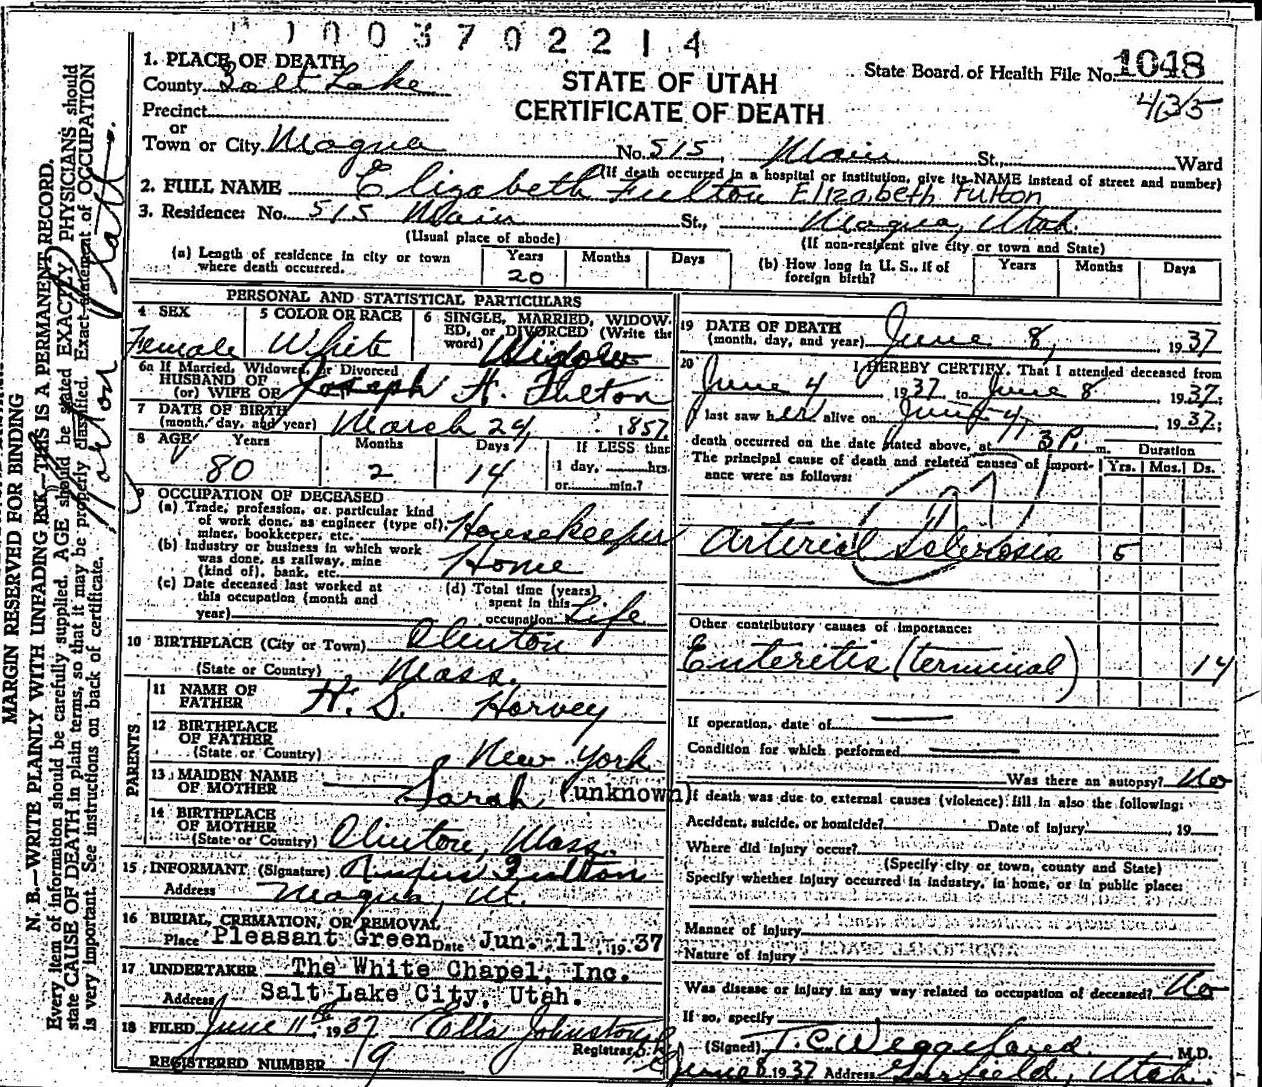 1003702214
1. PLACE OF DEATH
County Salt Lake
STATE OF UTAH
CERTIFICATE OF DEATH
State Board of Health File No. 1048
Precinct
or
Town or City Magna No. 515 Main St., Ward
(If death occurred in a hospital or institution, give its NAME instead of street and number)
2. FULL NAME Elizabeth Fulton Elizabeth Fulton
3. Residence: No. 515 Main St., Magna, Utah.
(Usual place of abode) (If non-resident give city or town and State)
(a) Length of residence in city or town where death occurred. Years 20 Months Days
(b) How long in U. S., if of foreign birth? Years Months Days
PERSONAL AND STATISTICAL PARTICULARS
4 SEX Female
5 COLOR OR RACE White
6 SINGLE, MARRIED, WIDOWED, or DIVORCED (Write the word) Widow
6a If Married, Widowed, or Divorced
HUSBAND OF
(or) WIFE OF Joseph A. Fulton
7 DATE OF BIRTH
(month, day, and year) March 24, 1857
8 AGE Years 80 Months 2 Days 14 If LESS than 1 day, hrs. or min.?
9 OCCUPATION OF DECEASED
(a) Trade, profession, or particular kind
of work done, as engineer (type of),
miner, bookkeeper, etc. Housekeeper
(b) Industry or business in which work
was done, as railway, mine
(kind of), bank, etc. Home
(c) Date deceased last worked at
this occupation (month and
year)
(d) Total time (years)
spent in this
occupation Life
10 BIRTHPLACE (City or Town) Clinton
(State or Country) Mass.
PARENTS
11 NAME OF
FATHER H. S. Harvey
12 BIRTHPLACE
OF FATHER
(State or Country) New York
13 MAIDEN NAME
OF MOTHER Sarah (unknown)
14 BIRTHPLACE
OF MOTHER
(State or Country) Clinton, Mass.
15 INFORMANT (Signature) Rufus Fulton
Address Magna, Ut.
16 BURIAL, CREMATION, OR REMOVAL
Place Pleasant Green Date Jun. 11, 1937
17 UNDERTAKER The White Chapel, Inc.
Address Salt Lake City, Utah.
18 FILED June 11th 1937 Ella Johnston
Registrar
REGISTERED NUMBER 19
19 DATE OF DEATH
(month, day, and year) June 8, 1937
20 I HEREBY CERTIFY, That I attended deceased from
June 4 1937 to June 8 1937;
I last saw her alive on June 4, 1937;
death occurred on the date stated above, at 3 P. m.
The principal cause of death and related causes of importance were as follows:
Duration
Yrs. Mos. Ds.
Arterial Sclerosis 5
Other contributory causes of importance:
Enteritis (terminal) 14
If operation, date of
Condition for which performed
Was there an autopsy? No
If death was due to external causes (violence) fill in also the following:
Accident, suicide, or homicide? Date of injury , 19
Where did injury occur?
(Specify city or town, county and State)
Specify whether injury occurred in industry, in home, or in public place:
Manner of injury
Nature of injury
Was disease or injury in any way related to occupation of deceased? No
If so, specify
(Signed) M.D.
June 8 1937 Address Garfield, Utah
MARGIN RESERVED FOR BINDING
N. B.—WRITE PLAINLY WITH UNFADING INK—THIS IS A PERMANENT RECORD.
Every item of information should be carefully supplied. AGE should be stated EXACTLY. PHYSICIANS should
state CAUSE OF DEATH in plain terms, so that it may be properly classified. Exact statement of OCCUPATION
is very important. See instructions on back of certificate.